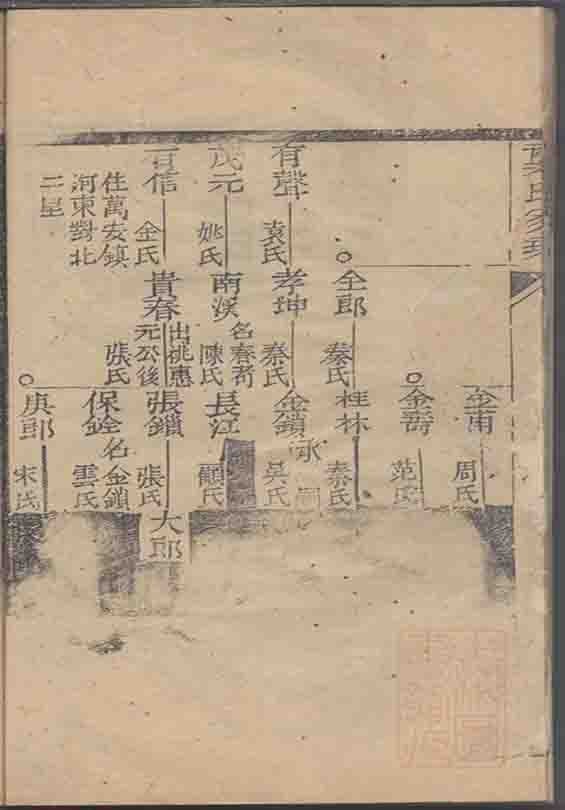 金甫
周氏
金壽
范氏
全郎
秦氏
桂林
秦氏
有聲
袁氏
孝坤
秦氏
金鎖
承
吳氏
茂元
姚氏
南溪
名春
陳氏
長江
顧氏
百信
金氏
住萬安鎮
河東對北
二里
貴春
出祧惠
元公後
張氏
張鎖
張氏
大郎
保銓
名金鎖
雲氏
庚郎
宋氏